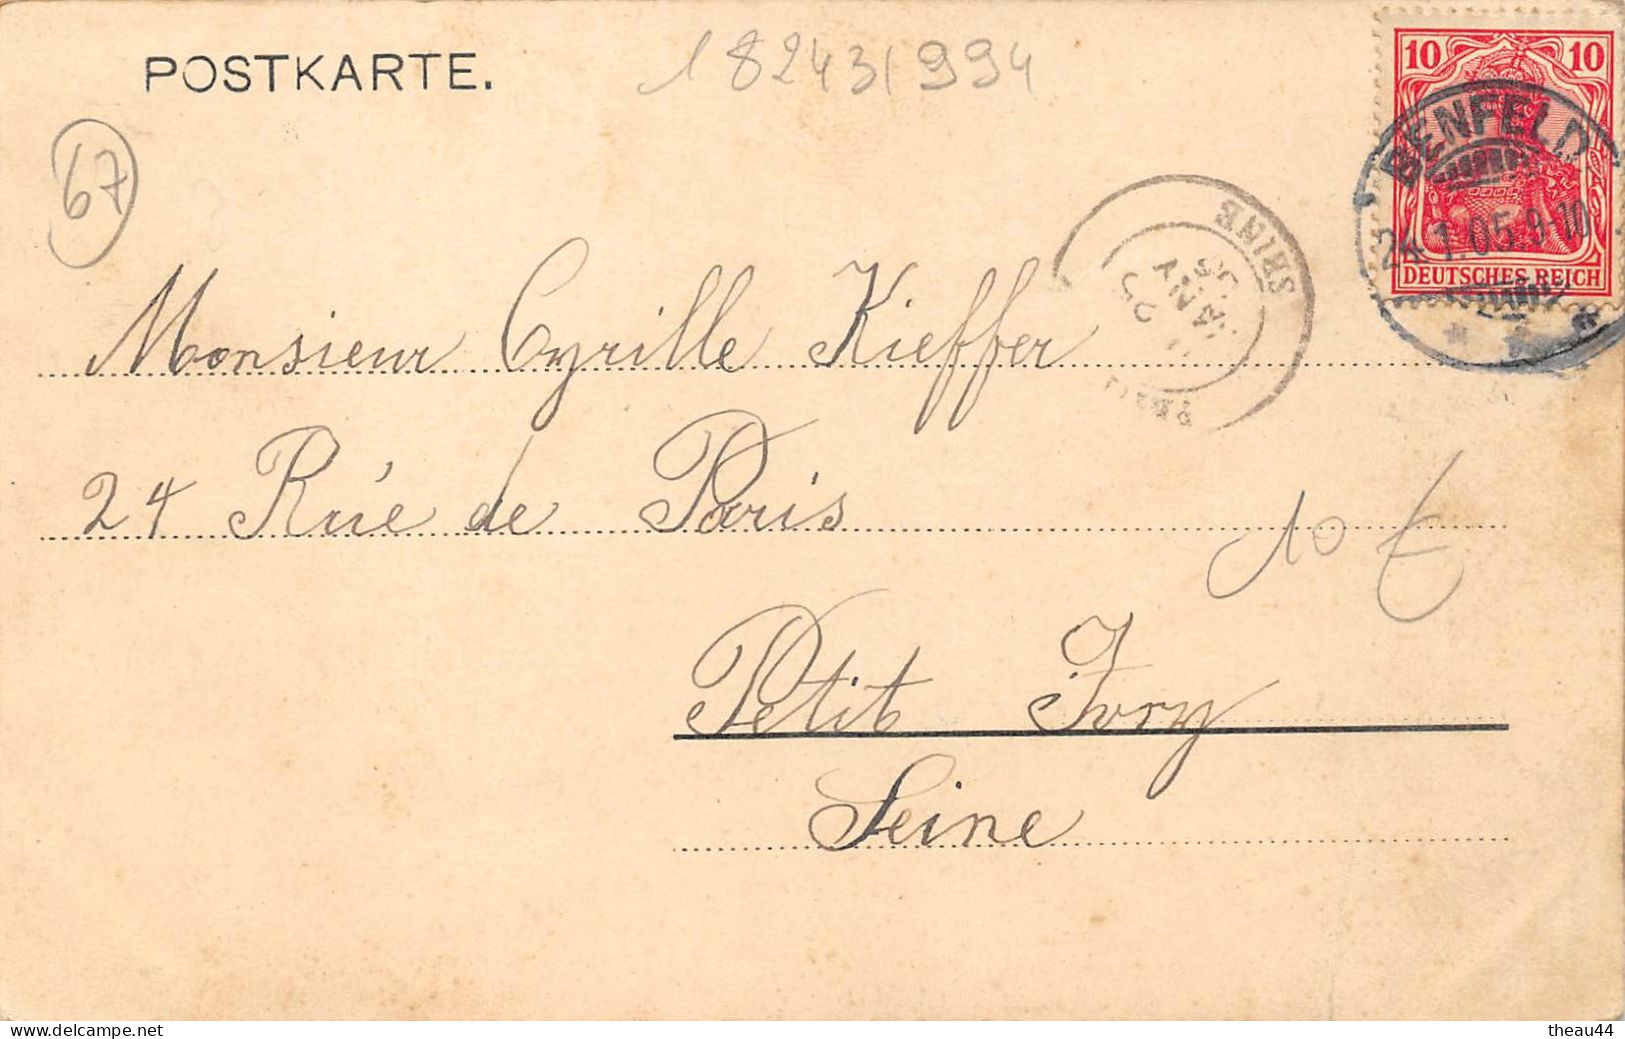 POSTKARTE.
18243/994
10 10
DEUTSCHES REICH
BENFELD
24.1.05.9-10
67
SEINE
JANV
Monsieur Cyrille Kieffer
24 Rúe de Paris
10 €
Petit Ivry
Seine
www.delcampe.net
theau44